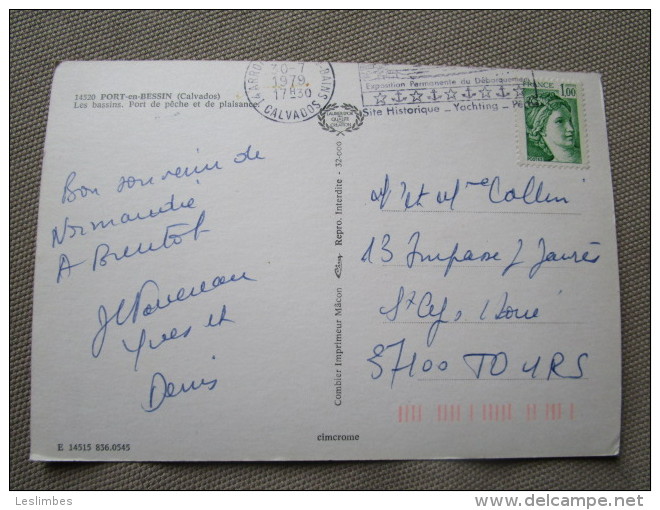 14520 PORT-en-BESSIN (Calvados)
Les bassins. Port de pêche et de plaisance
30-7
1979
17H30
CALVADOS
Exposition Permanente du Débarquement
Site Historique - Yachting - Pê
FRANCE
1,00
Bon souvenir de
Normandie
A Bientot
Yves et
Denis
Combier Imprimeur Mâcon
Repro. Interdite - 32-000
Mr et Mme Collin
13 Impasse J Jaurès
St Cyr s Loire
37100 TOURS
E 14515 836.0545
cimcrome
Leslimbes
delcampe.net